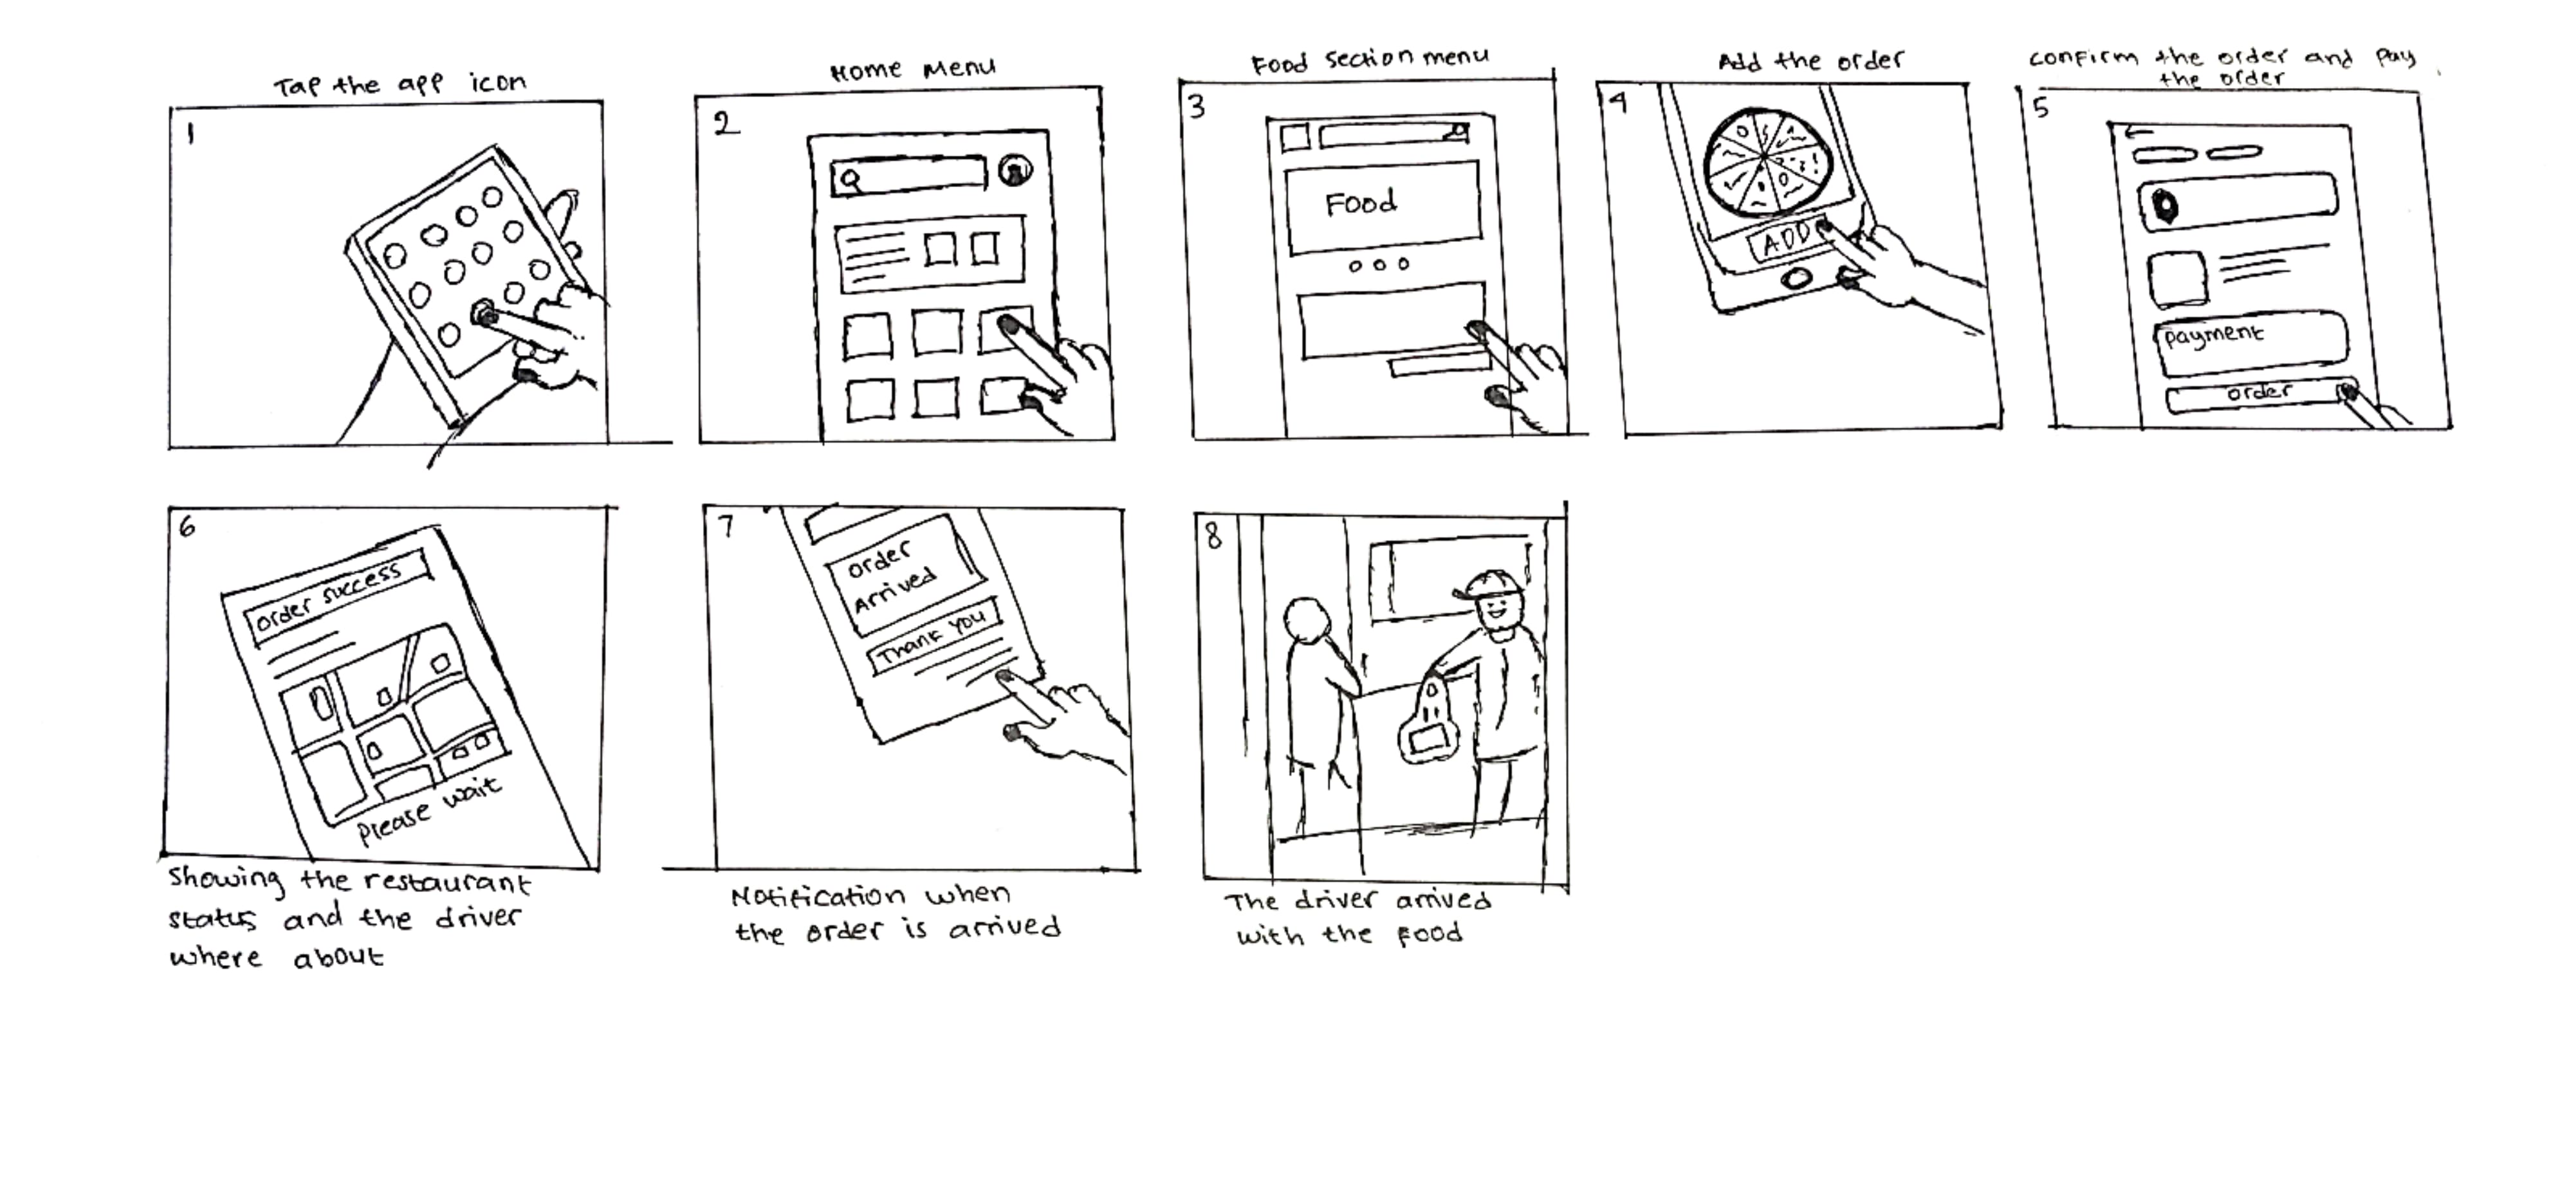 Tap the app icon
1
Home Menu
2
Food Section menu
3
Food
Add the order
4
ADD
confirm the order and pay
the order
5
payment
order
6
order success
Please wait
Showing the restaurant
status and the driver
where about
7
order
Arrived
Thank you
Notification when
the order is arrived
8
The driver arrived
with the food